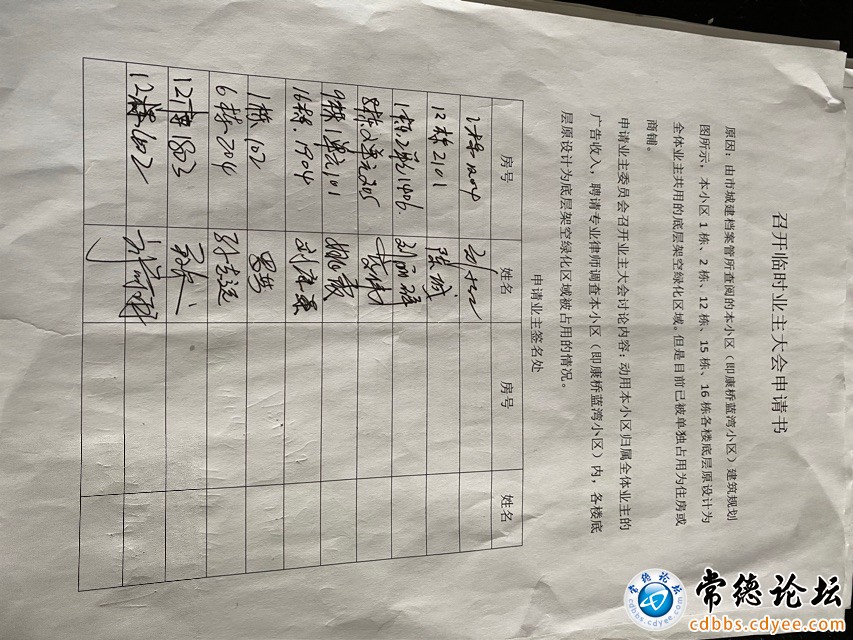 召开临时业主大会申请书
原因：由市城建档案管所查阅的本小区（即康桥蓝湾小区）建筑规划
图所示，本小区 1 栋、2 栋、12 栋、15 栋、16 栋各楼底层原设计为
全体业主共用的底层架空绿化区域。但是目前已被单独占用为住房或
商铺。
申请业主委员会召开业主大会讨论内容：动用本小区归属全体业主的
广告收入，聘请专业律师调查本小区（即康桥蓝湾小区）内，各楼底
层原设计为底层架空绿化区域被占用的情况。
申请业主签名处
房号 姓名 房号 姓名
12栋2101
1栋2单元1406
8栋2单元205
9栋1单元101
16栋.1704
1栋102
6栋204
12栋1803
12栋602
常德论坛
cdbbs.cdyee.com